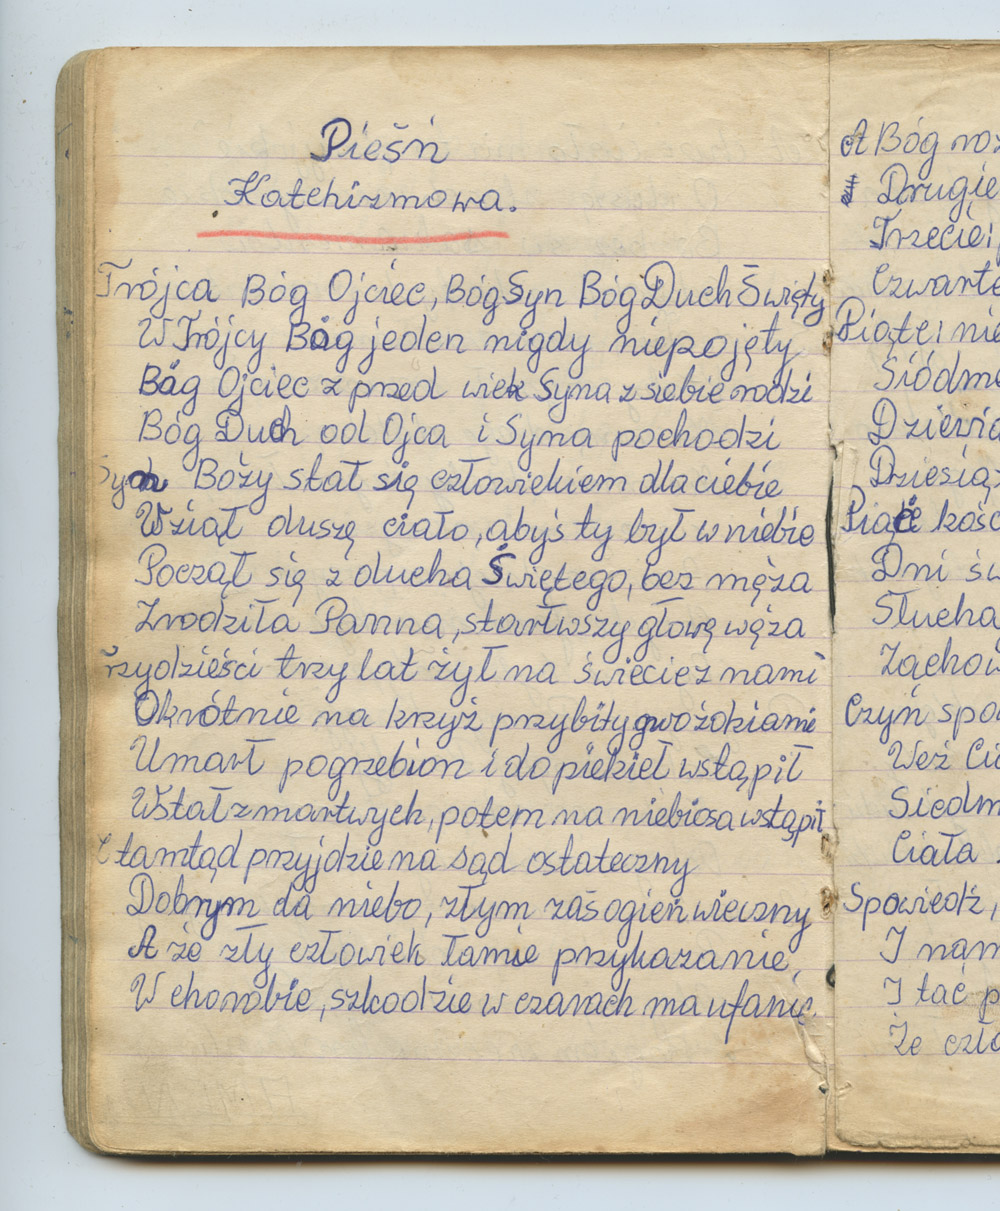 Pieśń
Katehizmowa.
Trójca Bóg Ojciec, Bóg Syn Bóg Duch Święty
W Trójcy Bóg jeden nigdy niepojęty
Bóg Ojciec z przed wiek Syna z siebie rodzi
Bóg Duch od Ojca i Syna pochodzi
Syn Boży stał się człowiekiem dla ciebie
Wziął duszę ciało, abyś ty był w niebie
Począł się z ducha Świętego, bez męża
Zrodziła Panna, starłwszy głowę węża
Trzydzieści trzy lat żył na świecie z nami
Okrótnie na krzyż przybity gwoździami
Umarł pogrzebion i do piekieł wstąpił
Wstał z martwych, potem na niebiosa wstąpił
tamtąd przyjdzie na sąd ostateczny
Dobrym da niebo, złym zaś ogień wieczny
A że zły człowiek łamie przykazanie,
W chorobie, szkodzie w czarach ma ufanie.
A Bóg roz
Drugie
Trzecie;
Czwarte
Piąte; nie
Siódme
Dziewią
Dziesiąt
Pięć kośc
Dni św
Słucha
Zachow
Czyń spo
Weź Ci
Siedm
Ciała
Spowiedź,
I nam
I tać p
Że czło